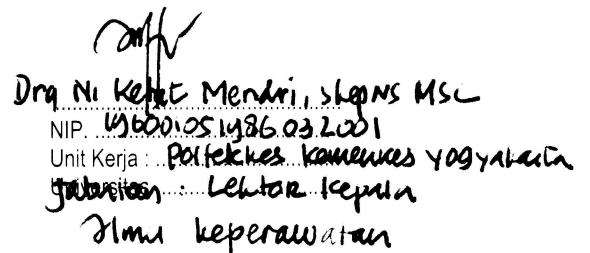 Dra Ni Ketut Mendri, SKep NS MSc
NIP. 196001051986032001
Unit Kerja : Poltekkes Kemenkes Yogyakarta
Jabatan : Lektor Kepala
Ilmu keperawatan